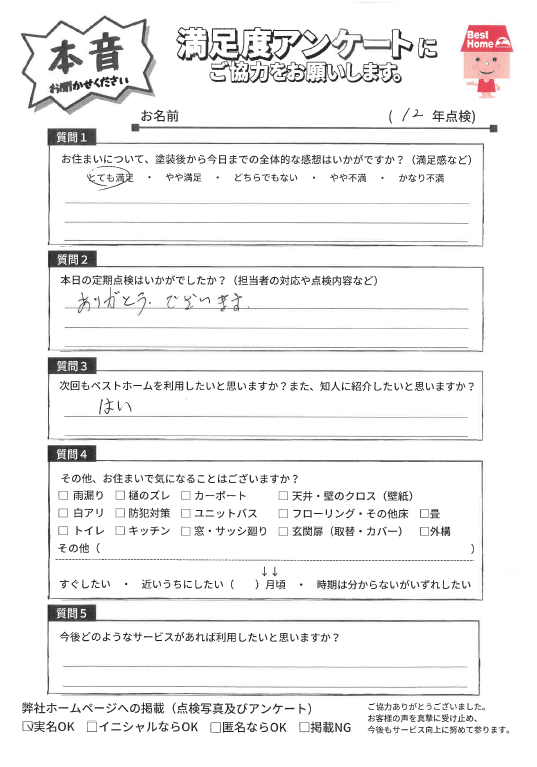 本音
お聞かせください
満足度アンケートに
ご協力をお願いします。
Best
Home
お名前 ( 12 年点検)
質問1
お住まいについて、塗装後から今日までの全体的な感想はいかがですか？（満足感など）
とても満足 ・ やや満足 ・ どちらでもない ・ やや不満 ・ かなり不満
質問2
本日の定期点検はいかがでしたか？（担当者の対応や点検内容など）
ありがとう.ございます.
質問3
次回もベストホームを利用したいと思いますか？また、知人に紹介したいと思いますか？
はい
質問4
その他、お住まいで気になることはございますか？
□ 雨漏り □ 樋のズレ □ カーポート □ 天井・壁のクロス（壁紙）
□ 白アリ □ 防犯対策 □ ユニットバス □ フローリング・その他床 □畳
□ トイレ □ キッチン □ 窓・サッシ廻り □ 玄関扉（取替・カバー） □外構
その他（ ）
↓↓
すぐしたい ・ 近いうちにしたい（ ）月頃 ・ 時期は分からないがいずれしたい
質問5
今後どのようなサービスがあれば利用したいと思いますか？
弊社ホームページへの掲載（点検写真及びアンケート）
☑実名OK □イニシャルならOK □匿名ならOK □掲載NG
ご協力ありがとうございました。
お客様の声を真摯に受け止め、
今後もサービス向上に努めて参ります。